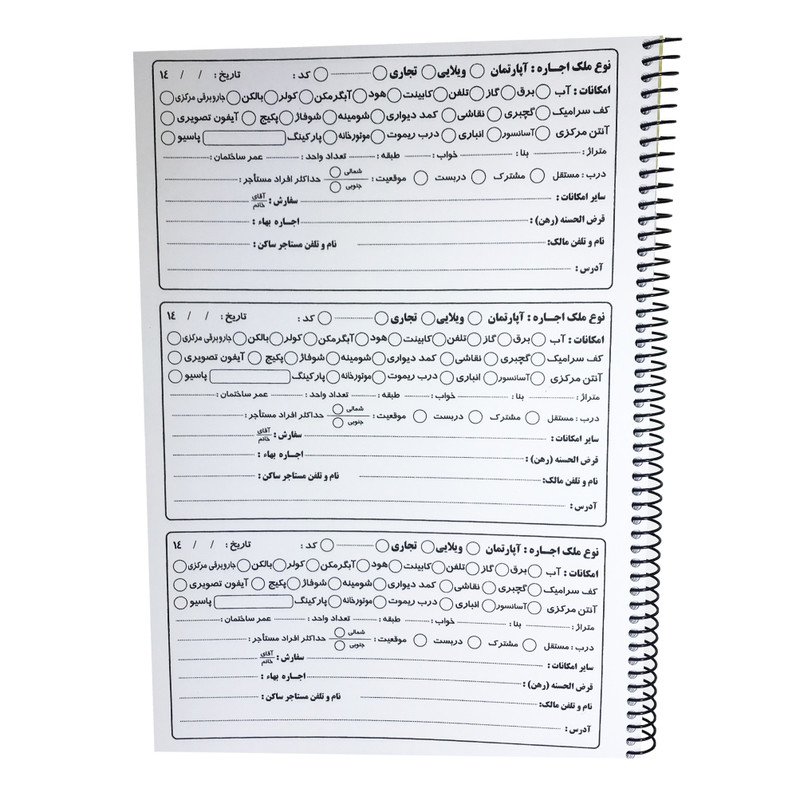 نوع ملک اجاره : آپارتمان ویلایی تجاری کد : تاریخ : / / ١٤
امکانات : آب برق گاز تلفن کابینت هود آبگرمکن کولر بالکن جاروبرقی مرکزی
کف سرامیک گچبری نقاشی کمد دیواری شومینه شوفاژ پکیج آیفون تصویری
آنتن مرکزی آسانسور انباری درب ریموت موتورخانه پارکینگ پاسیو
متراژ : بنا : خواب : طبقه : تعداد واحد : عمر ساختمان :
درب : مستقل مشترک دربست موقعیت : شمالی جنوبی حداکثر افراد مستأجر :
سایر امکانات : سفارش : آقای خانم
قرض الحسنه (رهن) : اجاره بهاء :
نام و تلفن مالک: نام و تلفن مستاجر ساکن :
آدرس :
نوع ملک اجاره : آپارتمان ویلایی تجاری کد : تاریخ : / / ١٤
امکانات : آب برق گاز تلفن کابینت هود آبگرمکن کولر بالکن جاروبرقی مرکزی
کف سرامیک گچبری نقاشی کمد دیواری شومینه شوفاژ پکیج آیفون تصویری
آنتن مرکزی آسانسور انباری درب ریموت موتورخانه پارکینگ پاسیو
متراژ : بنا : خواب : طبقه : تعداد واحد : عمر ساختمان :
درب : مستقل مشترک دربست موقعیت : شمالی جنوبی حداکثر افراد مستأجر :
سایر امکانات : سفارش : آقای خانم
قرض الحسنه (رهن) : اجاره بهاء :
نام و تلفن مالک: نام و تلفن مستاجر ساکن :
آدرس :
نوع ملک اجاره : آپارتمان ویلایی تجاری کد : تاریخ : / / ١٤
امکانات : آب برق گاز تلفن کابینت هود آبگرمکن کولر بالکن جاروبرقی مرکزی
کف سرامیک گچبری نقاشی کمد دیواری شومینه شوفاژ پکیج آیفون تصویری
آنتن مرکزی آسانسور انباری درب ریموت موتورخانه پارکینگ پاسیو
متراژ : بنا : خواب : طبقه : تعداد واحد : عمر ساختمان :
درب : مستقل مشترک دربست موقعیت : شمالی جنوبی حداکثر افراد مستأجر :
سایر امکانات : سفارش : آقای خانم
قرض الحسنه (رهن) : اجاره بهاء :
نام و تلفن مالک: نام و تلفن مستاجر ساکن :
آدرس :